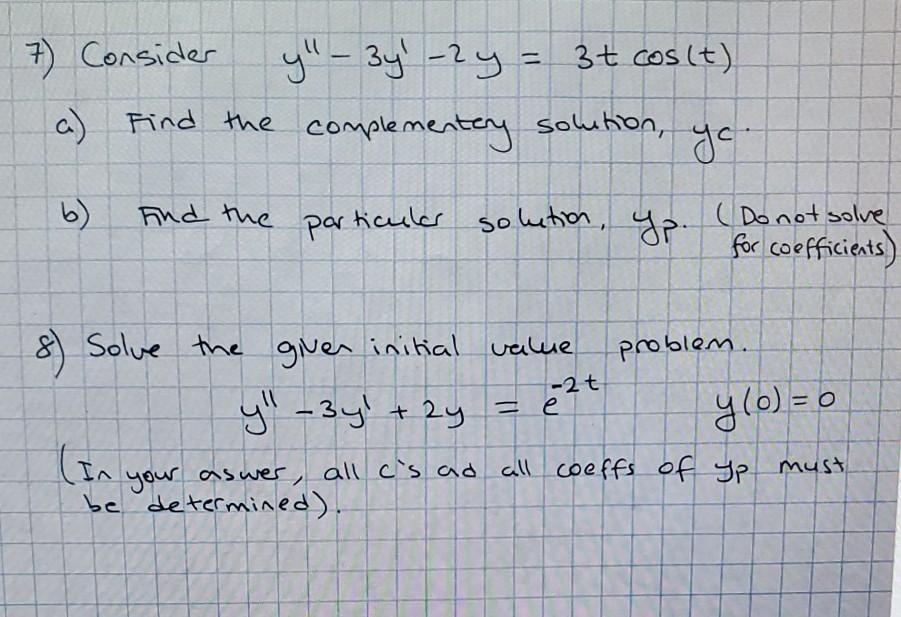 7) Consider y'' - 3y' - 2y = 3t cos(t)
a) Find the complementery solution, yc.
b) Find the particuler solution, yp. (Do not solve
for coefficients)
8) Solve the given initial value problem.
y'' - 3y' + 2y = e^{-2t} y(0) = 0
(In your aswer, all c's ad all coeffs of yp must
be determined).